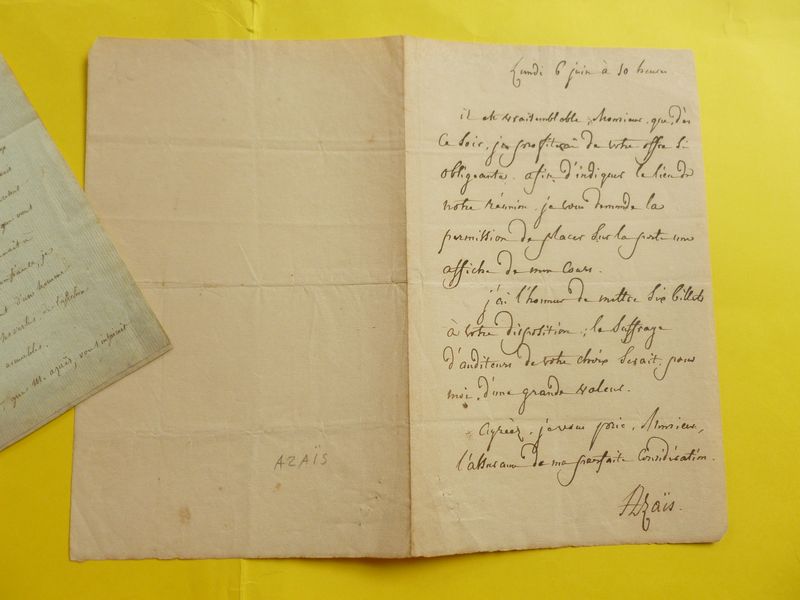 Lundi 6 juin à 10 heures
il est vraisemblable, Monsieur, que, dès
ce soir, je profiterai de votre offre si
obligeante. afin d'indiquer le lieu de
notre réunion, je vous demande la
permission de placer sur la porte une
affiche de mon Cours.
j'ai l'honneur de mettre six billets
à votre disposition ; le suffrage
d'auditeurs de votre choix serait, pour
moi, d'une grande valeur.
Agréez, je vous prie, Monsieur,
l'assurance de ma parfaite Considération.
Azaïs.
AZAÏS
qui vous
je
d'un homme
que M. vous